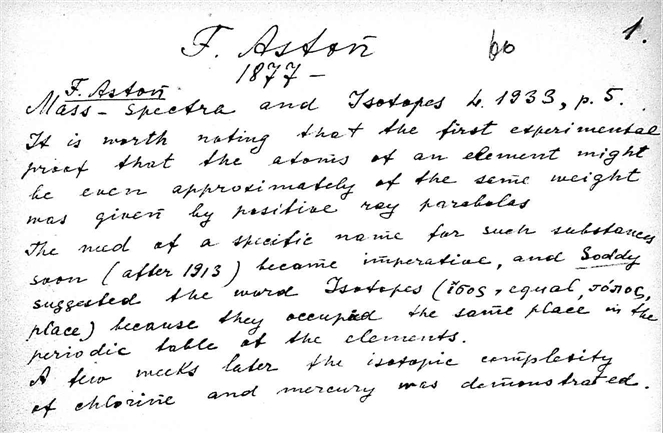 F. Aston 60 1.
1877 –
F. Aston
Mass-Spectra and Isotopes L. 1933, p. 5.
It is worth noting that the first experimental
proof that the atoms of an element might
be even approximately of the same weight
was given by positive ray parabolas
The need of a specific name for such substances
soon (after 1913) became imperative, and Soddy
suggested the word Isotopes (ἴσος, equal, τόπος,
place) because they occupied the same place in the
periodic table of the elements.
A few weeks later the isotopic complexity
of chlorine and mercury was demonstrated.